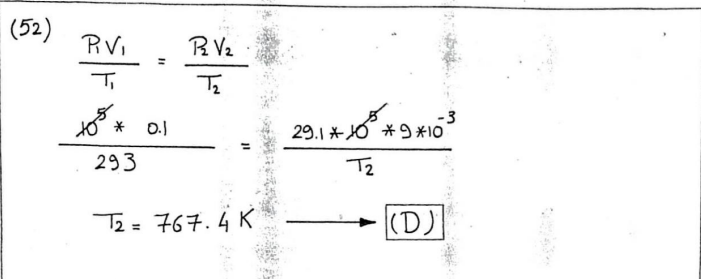 (52)
P₁V₁ / T₁ = P₂V₂ / T₂
10⁵ * 0.1 / 293 = 29.1 * 10⁵ * 9 * 10⁻³ / T₂
T₂ = 767.4 K ⟶ (D)